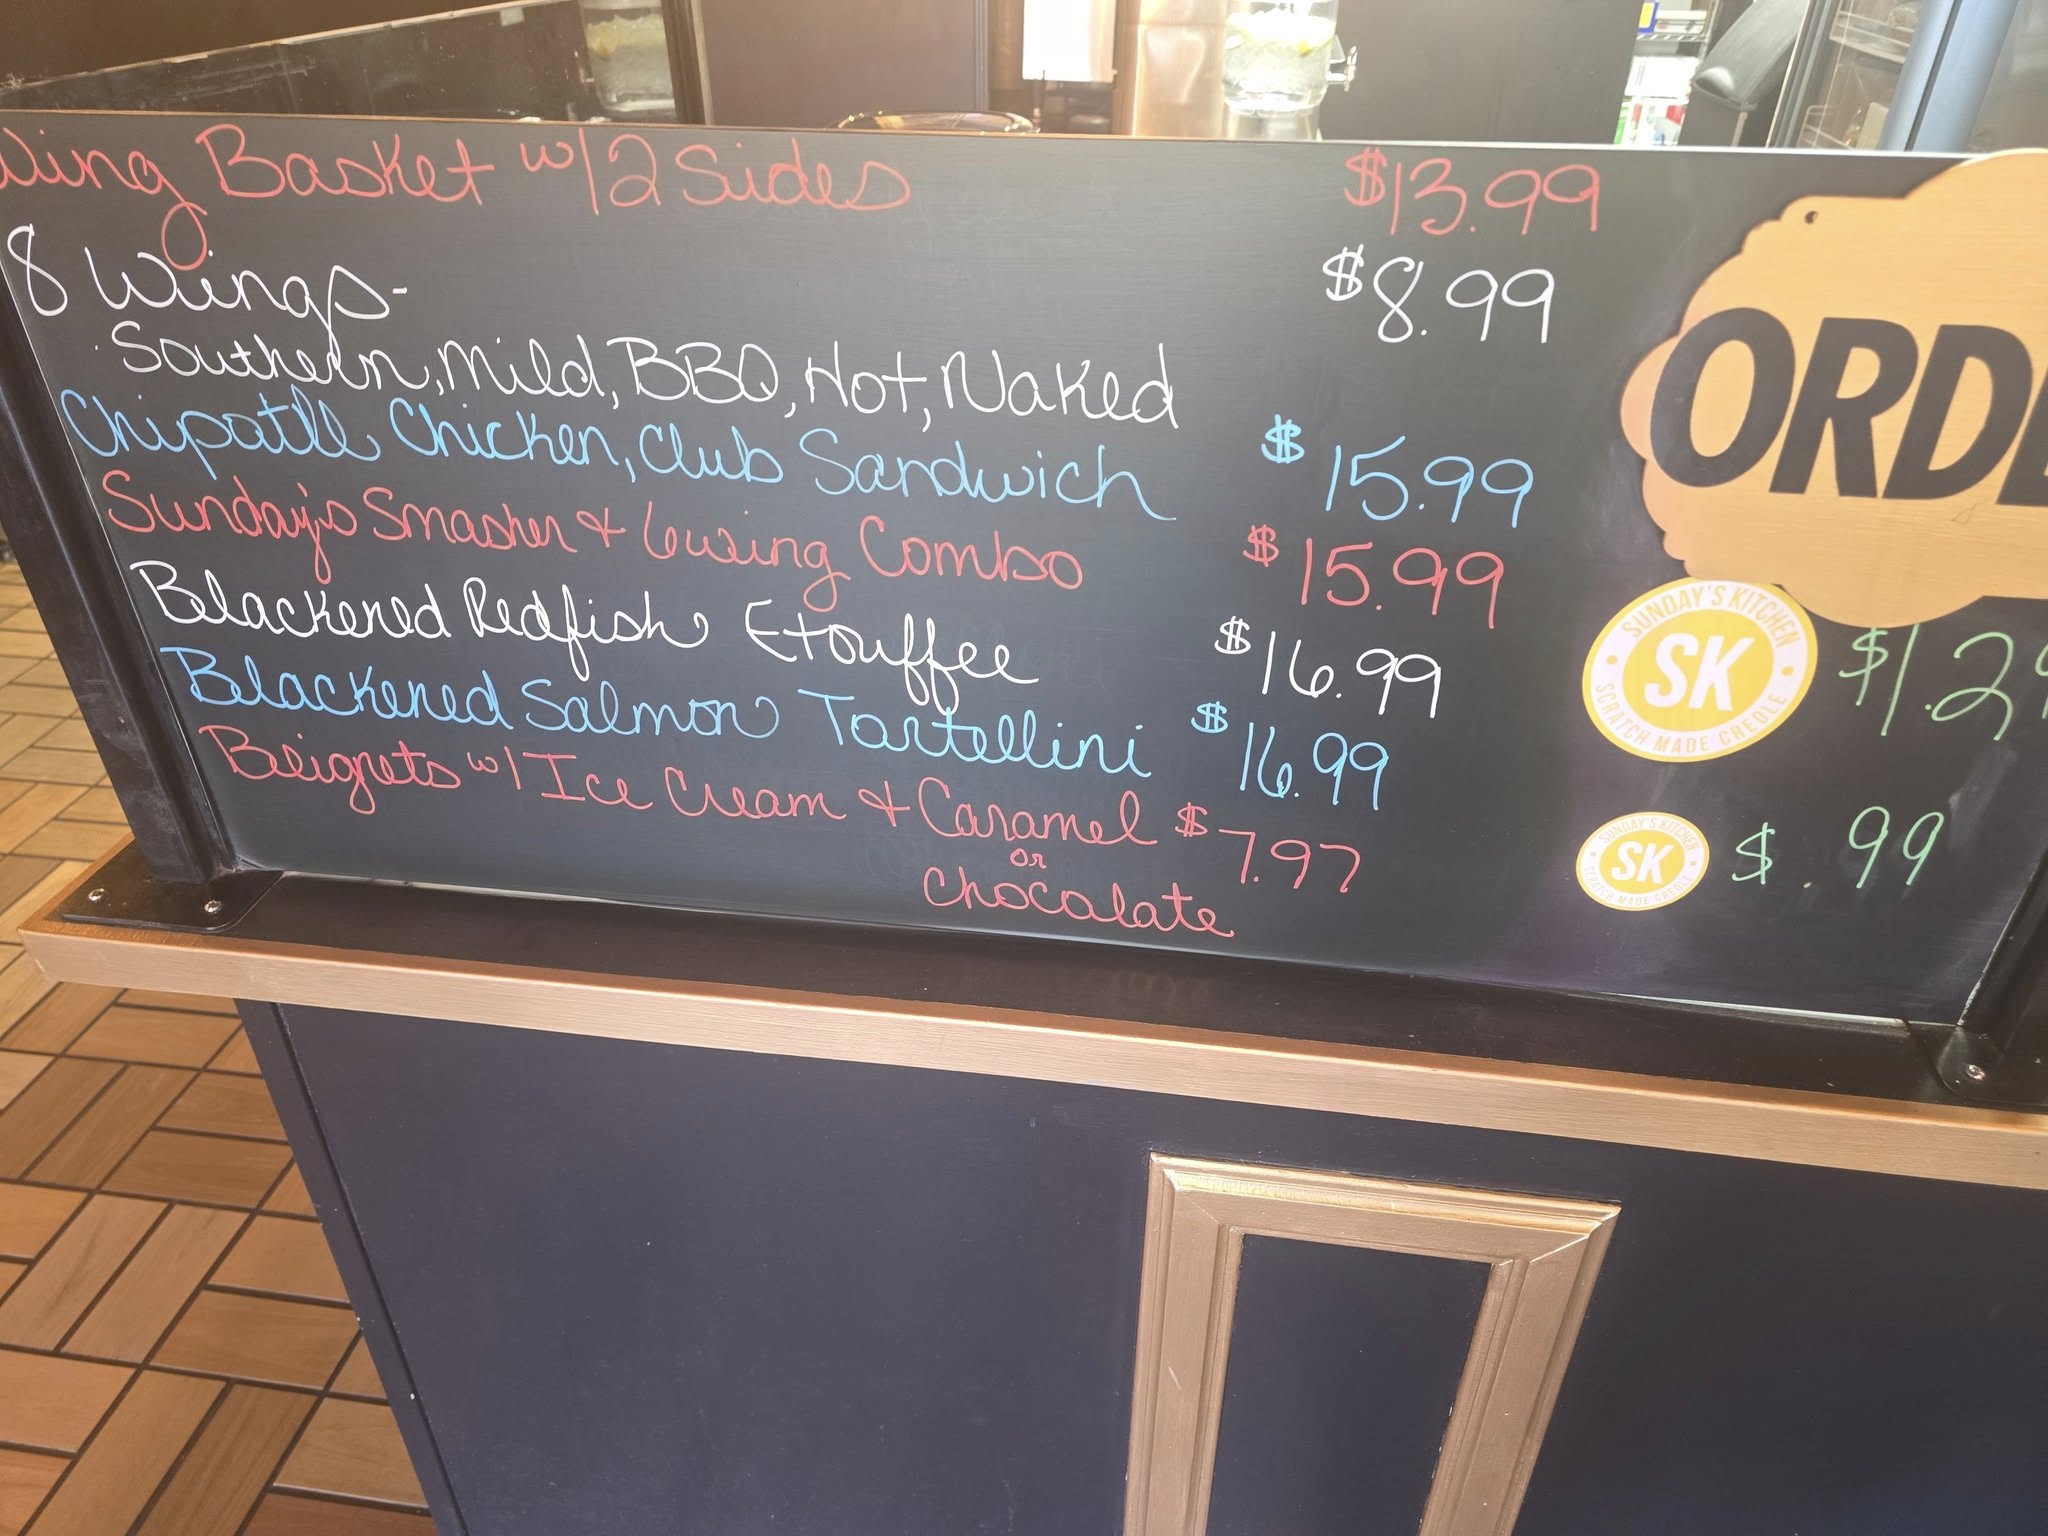 Wing Basket w/2 Sides $13.99
8 Wings- $8.99
Southern, Mild, BBQ, Hot, Naked
Chipotlle Chicken, Club Sandwich $15.99
Sunday's Smasher & 6wing Combo $15.99
Blackened Redfish Etouffee $16.99
Blackened Salmon Tartellini $16.99
Beignets w/ Ice Cream & Caramel $7.97
or
Chocolate
ORD
SUNDAY'S KITCHEN
SK
SCRATCH MADE CREOLE
$1.29
SUNDAY'S KITCHEN
SK
SCRATCH MADE CREOLE
$.99